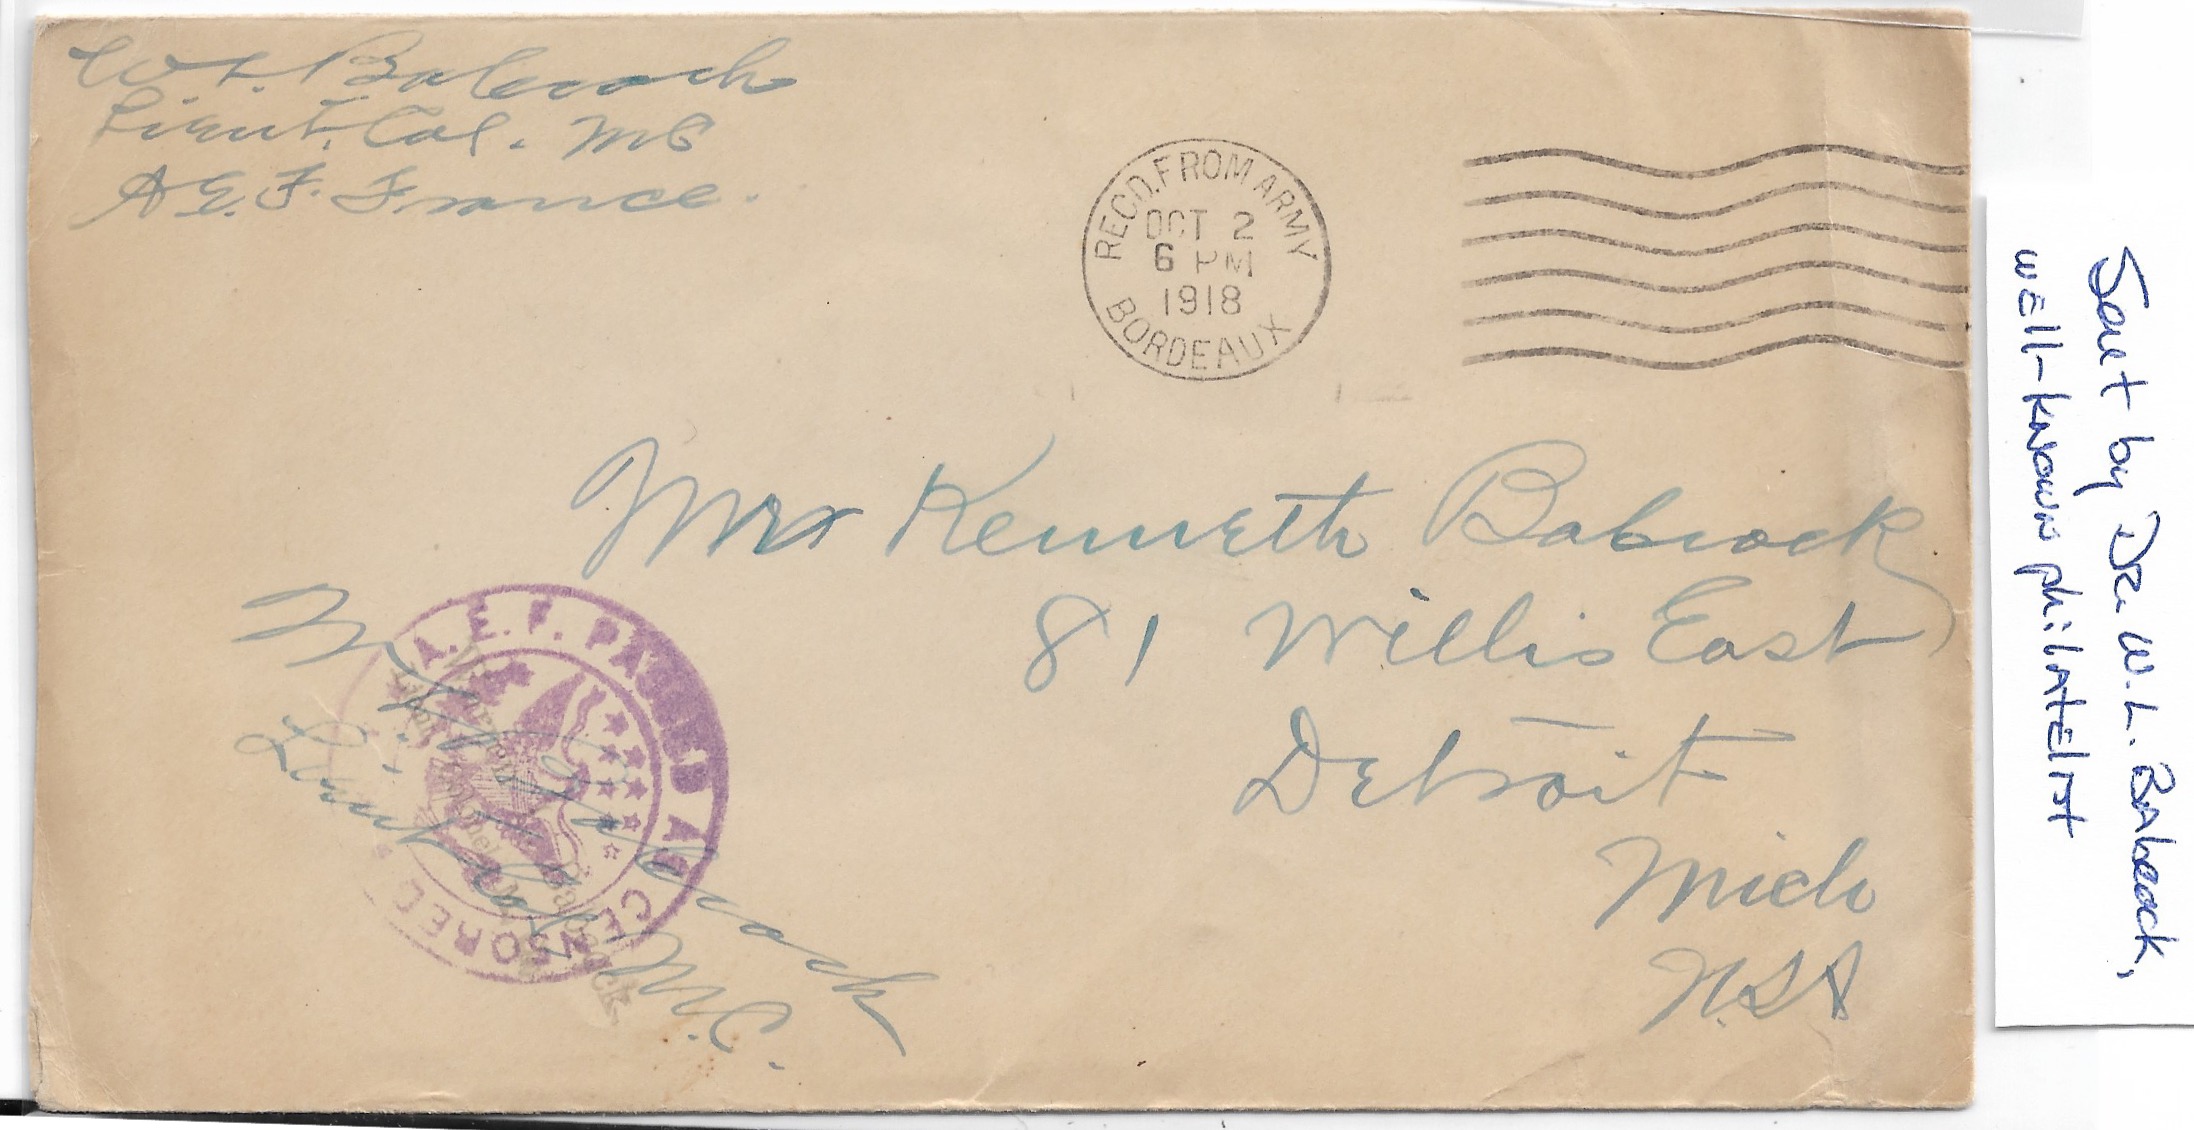 W. L. Babcock
Lieut. Col. MC
A. E. F. France.
RECD. FROM ARMY
OCT 2
6 PM
1918
BORDEAUX
Mrs Kenneth Babcock
81 Willis East
Detroit
Mich
USA
A. E. F. PASSED AS CENSORED
Babcock
Lieut. Colonel
W. L. Babcock
Lieut Col M.C.
Sent by Dr. W. L. Babcock,
well-known philatelist